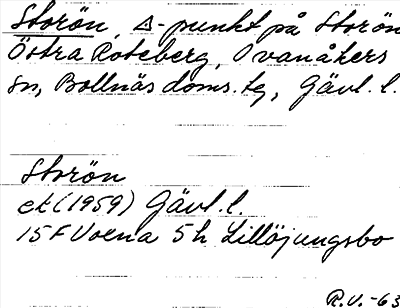 Storön, Δ-punkt på Storön
Östra Roteberg, Ovanåkers
sn, Bollnäs doms. tg, Gävl. l.
Storön
ek (1959) Gävl. l.
15 F Voxna 5h Lillöjungsbo
R.V. -63